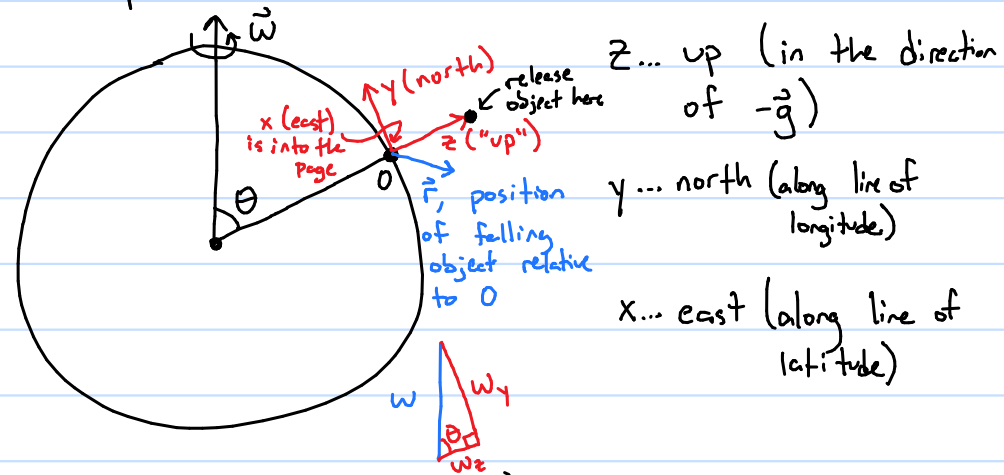 ω⃗
y (north)
release
object here
x (east)
is into the
page
z ("up")
O
θ
r⃗, position
of falling
object relative
to O
ω
ωy
θ
ωz
z... up (in the direction
of -g⃗)
y... north (along line of
longitude)
x... east (along line of
latitude)